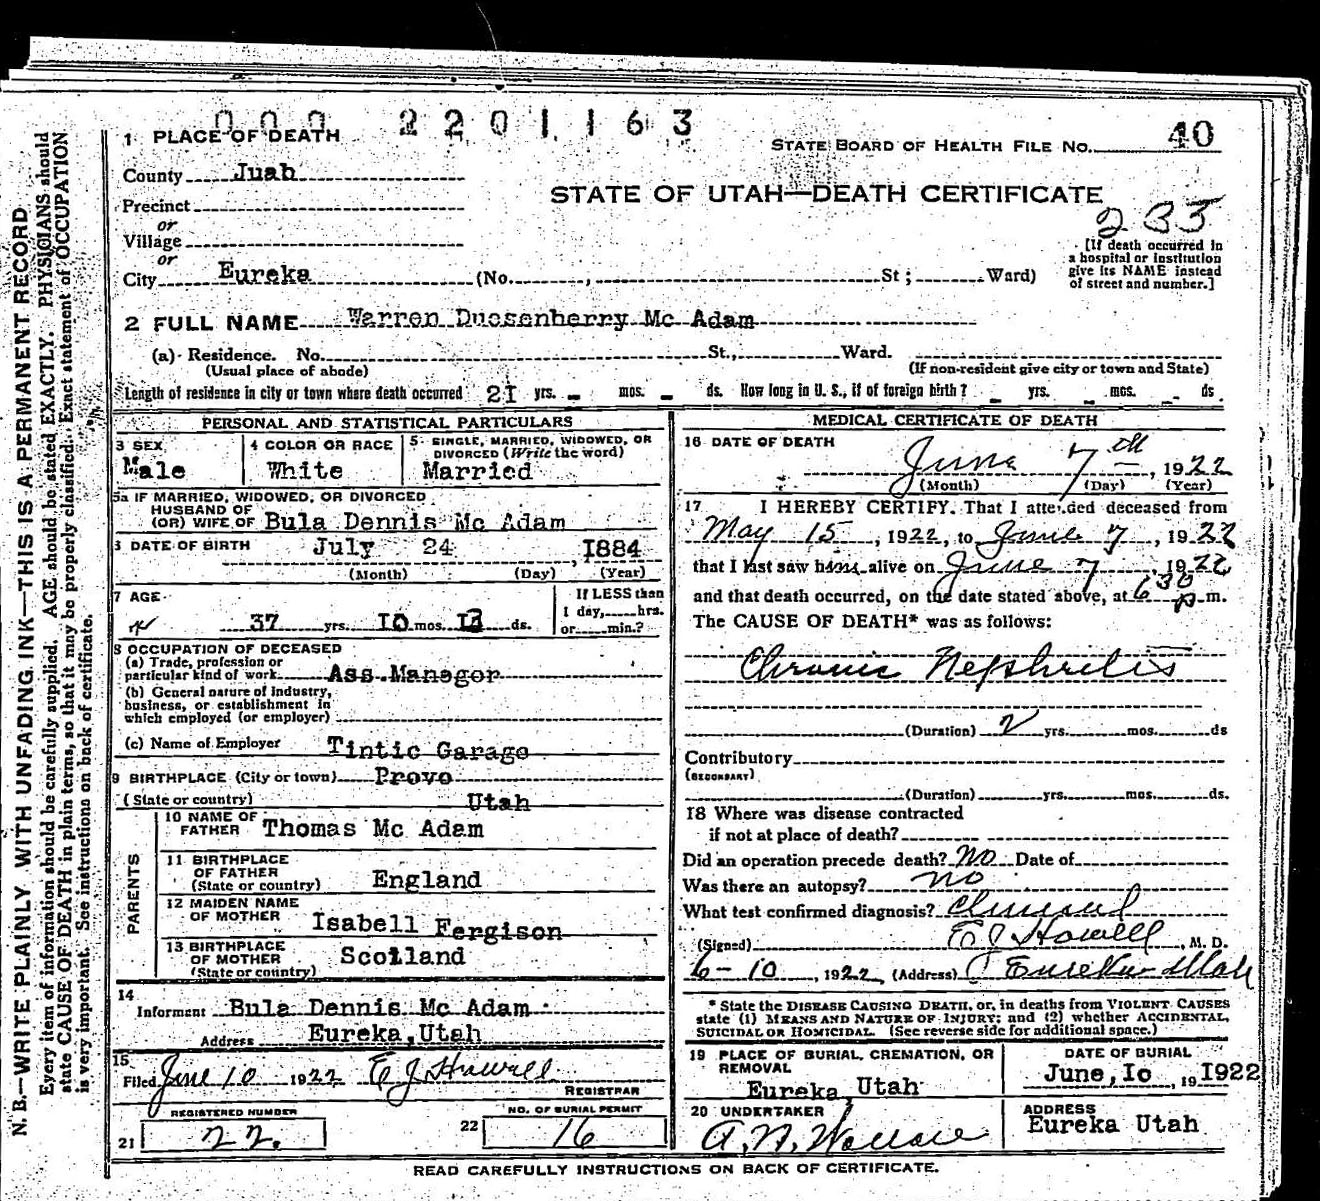 000 2201163
1 PLACE OF DEATH
STATE BOARD OF HEALTH FILE NO. 40
County Juab
STATE OF UTAH—DEATH CERTIFICATE
Precinct
233
or
Village
or
[If death occurred in
a hospital or institution
give its NAME instead
of street and number.]
City Eureka (No. , St ; Ward)
2 FULL NAME Warren Duesenberry Mc Adam
(a) Residence. No. St., Ward.
(Usual place of abode) (If non-resident give city or town and State)
Length of residence in city or town where death occurred 21 yrs. – mos. – ds. How long in U. S., if of foreign birth? – yrs. – mos. – ds.
PERSONAL AND STATISTICAL PARTICULARS
3 SEX
Male
4 COLOR OR RACE
White
5 SINGLE, MARRIED, WIDOWED, OR
DIVORCED (Write the word)
Married
5a IF MARRIED, WIDOWED, OR DIVORCED
HUSBAND OF
(OR) WIFE OF Bula Dennis Mc Adam
DATE OF BIRTH July 24, 1884
(Month) (Day) (Year)
7 AGE
37 yrs. 10 mos. 13 ds.
If LESS than
1 day, hrs.
or min.?
8 OCCUPATION OF DECEASED
(a) Trade, profession or
particular kind of work Ass.Manager
(b) General nature of industry,
business, or establishment in
which employed (or employer)
(c) Name of Employer Tintic Garage
9 BIRTHPLACE (City or town) Provo
(State or country) Utah
PARENTS
10 NAME OF
FATHER Thomas Mc Adam
11 BIRTHPLACE
OF FATHER
(State or country) England
12 MAIDEN NAME
OF MOTHER Isabell Fergison
13 BIRTHPLACE
OF MOTHER
(State or country) Scotland
14
Informent Bula Dennis Mc Adam
Address Eureka,Utah
15
Filed June 10 1922 E J Howell
REGISTRAR
REGISTERED NUMBER
21 22.
NO. OF BURIAL PERMIT
22 16
MEDICAL CERTIFICATE OF DEATH
16 DATE OF DEATH
June 7th, 1922
(Month) (Day) (Year)
17 I HEREBY CERTIFY, That I attended deceased from
May 15, 1922, to June 7, 1922
that I last saw him alive on June 7, 1922
and that death occurred, on the date stated above, at 6 30 p m.
The CAUSE OF DEATH* was as follows:
Chronic Nephritis
(Duration) 2 yrs. mos. ds
Contributory
(SECONDARY)
(Duration) yrs. mos. ds.
18 Where was disease contracted
if not at place of death?
Did an operation precede death? No Date of
Was there an autopsy? no
What test confirmed diagnosis? Clinical
(Signed) E J Howell, M. D.
6-10, 1922 (Address) Eureka Utah
* State the DISEASE CAUSING DEATH, or, in deaths from VIOLENT CAUSES
state (1) MEANS AND NATURE OF INJURY; and (2) whether ACCIDENTAL,
SUICIDAL OR HOMICIDAL. (See reverse side for additional space.)
19 PLACE OF BURIAL, CREMATION, OR
REMOVAL
Eureka Utah
DATE OF BURIAL
June,10, 191922
20 UNDERTAKER
A. N. Wallace
ADDRESS
Eureka Utah
READ CAREFULLY INSTRUCTIONS ON BACK OF CERTIFICATE.
N. B.—WRITE PLAINLY WITH UNFADING INK—THIS IS A PERMANENT RECORD
Every item of information should be carefully supplied. AGE should be stated EXACTLY. PHYSICIANS should
state CAUSE OF DEATH in plain terms, so that it may be properly classified. Exact statement of OCCUPATION
is very important. See instructions on back of certificate.